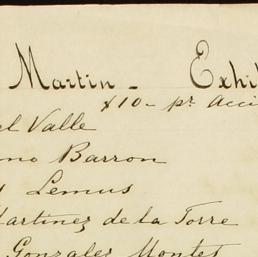 Martin - Exhi
$10- pr. Acci
el Valle
no Barron
Lemus
Martinez de la Torre
Gonzales Montes